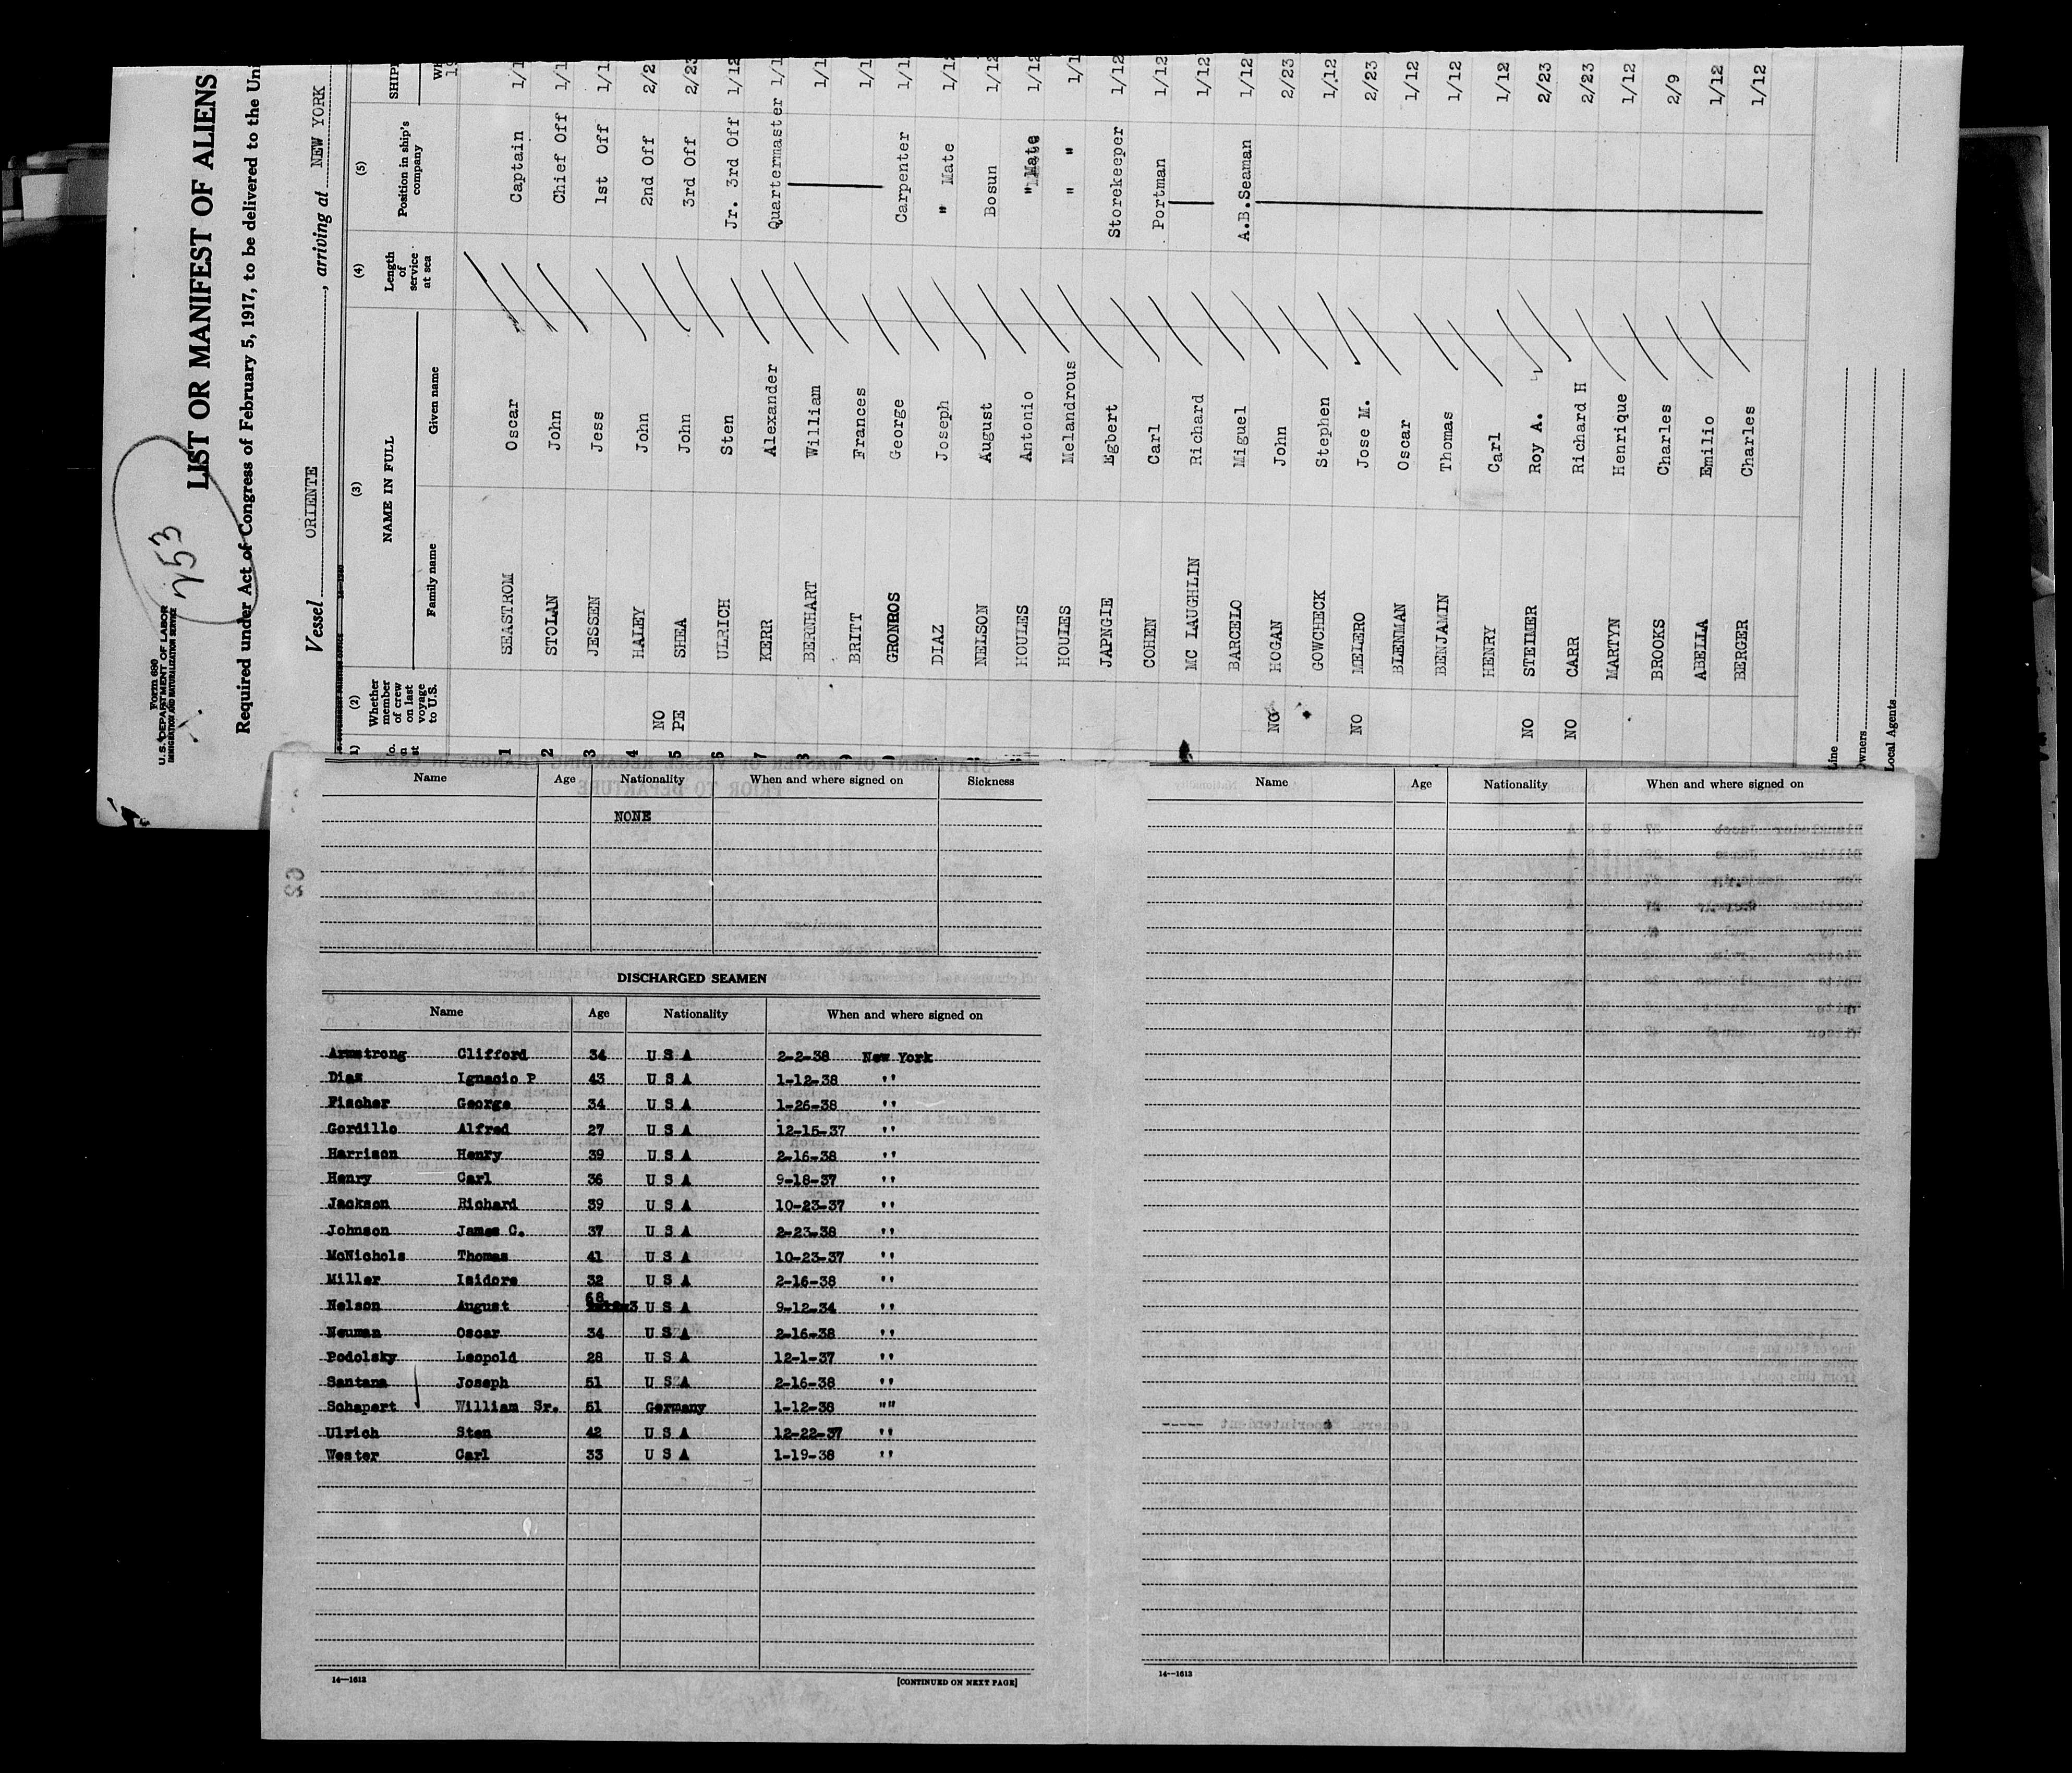 Form 680
U.S. DEPARTMENT OF LABOR
IMMIGRATION AND NATURALIZATION SERVICE
253
LIST OR MANIFEST OF ALIENS
Required under Act of Congress of February 5, 1917, to be delivered to the Uni
Vessel ORIENTE, arriving at NEW YORK
(2) (3) (4) (5)
Whether member of crew on last voyage to U.S. NAME IN FULL Length of service at sea Position in ship's company SHIPP
Family name Given name
1 SEASTROM Oscar Captain 1/1
2 STOLAN John Chief Off 1/1
3 JESSEN Jess 1st Off 1/1
4 HALEY John 2nd Off 2/2
NO
5 PE SHEA John 3rd Off 2/23
6 ULRICH Sten Jr. 3rd Off 1/12
7 KERR Alexander Quartermaster 1/1
8 BERNHART William 1/1
BRITT Frances 1/1
GRONROS George Carpenter 1/1
DIAZ Joseph " Mate 1/12
NELSON August Bosun 1/12
HOULES Antonio " Mate 1/12
HOULES Melandrous " " 1/1
JAPNGIE Egbert Storekeeper 1/12
COHEN Carl Portman 1/12
MC LAUGHLIN Richard 1/12
BARCELO Miguel A.B.Seaman 1/12
NO HOGAN John 2/23
GOWCHECK Stephen 1/12
NO MELERO Jose M. 2/23
BLENMAN Oscar 1/12
BENJAMIN Thomas 1/12
HENRY Carl 1/12
NO STEIMER Roy A. 2/23
NO CARR Richard H 2/23
MARTYN Henrique 1/12
BROOKS Charles 2/9
ABELLA Emilio 1/12
BERGER Charles 1/12
Line
Owners
Local Agents
Name Age Nationality When and where signed on Sickness
NONE
DISCHARGED SEAMEN
Name Age Nationality When and where signed on
Armstrong Clifford 34 U S A 2-2-38 New York
Diaz Ignacio P 43 U S A 1-12-38 ''
Fischer George 34 U S A 1-26-38 ''
Gordillo Alfred 27 U S A 12-15-37 ''
Harrison Henry 39 U S A 2-16-38 ''
Henry Carl 36 U S A 9-18-37 ''
Jackson Richard 39 U S A 10-23-37 ''
Johnson James C. 37 U S A 2-23-38 ''
McNichols Thomas 41 U S A 10-23-37 ''
Miller Isidore 32 U S A 2-16-38 ''
Nelson August 68 U S A 9-12-34 ''
Neuman Oscar 34 U S A 2-16-38 ''
Podolsky Leopold 28 U S A 12-1-37 ''
Santana Joseph 51 U S A 2-16-38 ''
Schapert William Sr. 51 Germany 1-12-38 ""
Ulrich Sten 42 U S A 12-22-37 ''
Wester Carl 33 U S A 1-19-38 ''
14—1613
[CONTINUED ON NEXT PAGE]
Name Age Nationality When and where signed on
14—1613